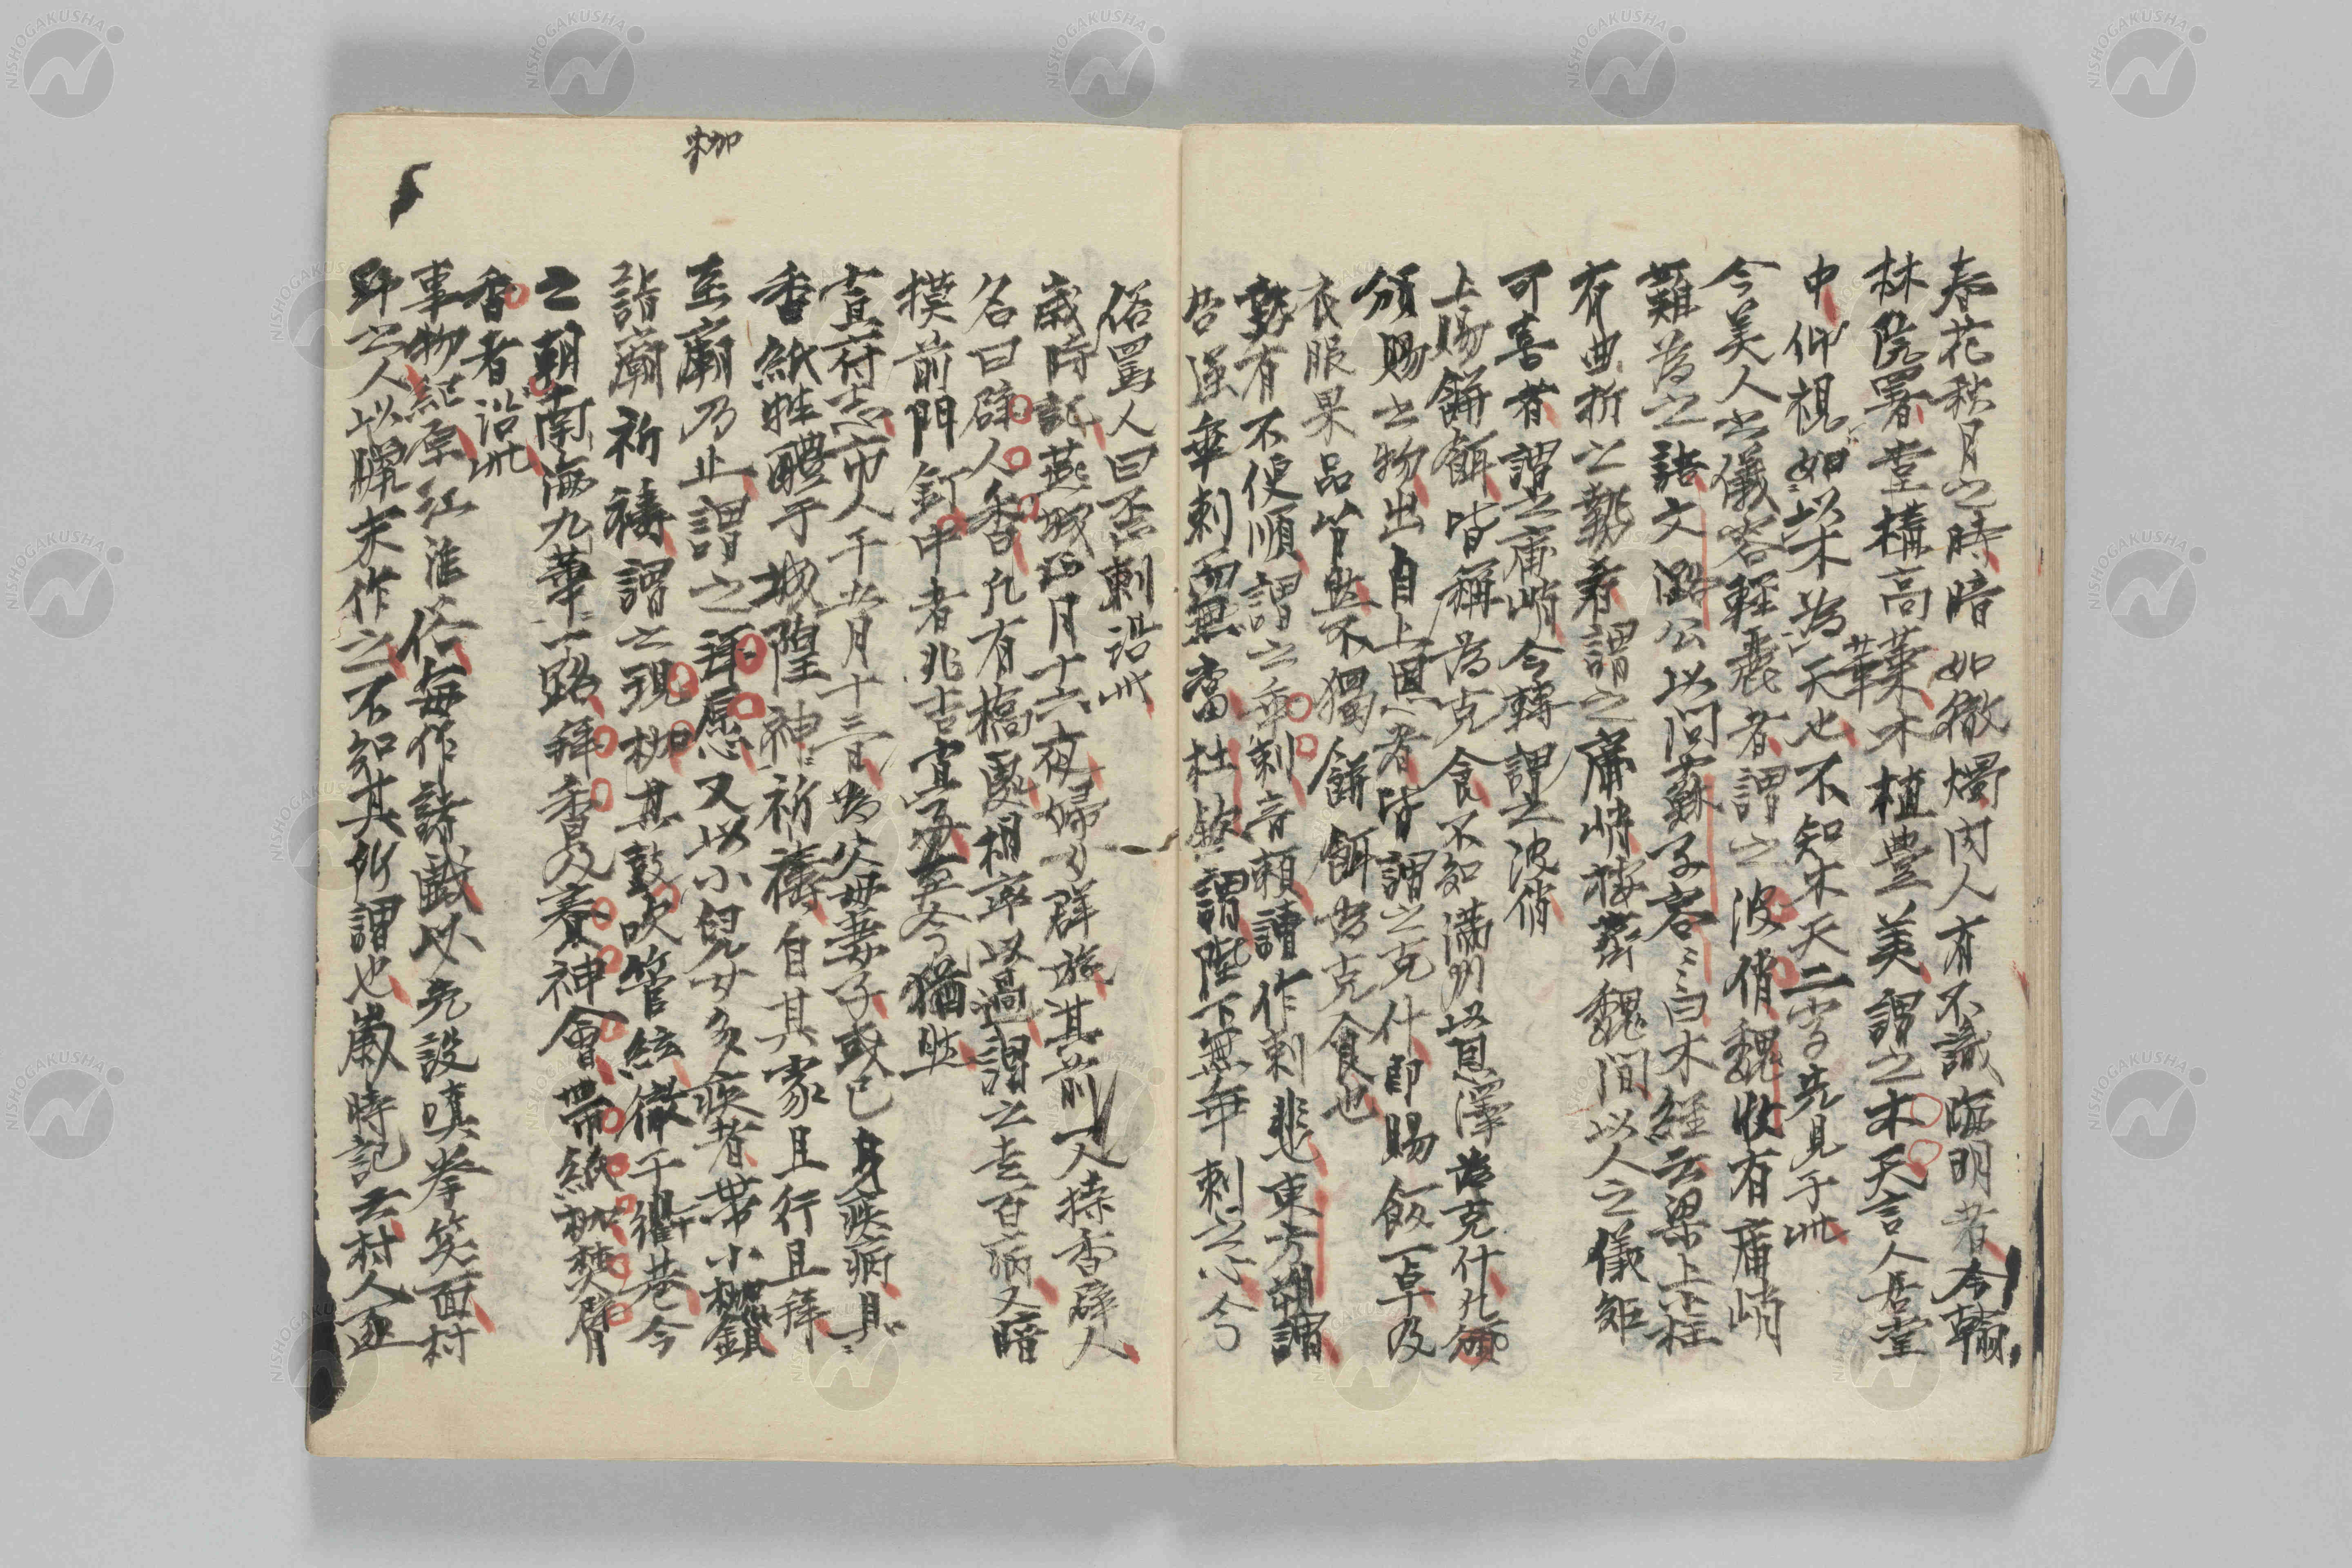 春花秋月之時暗如徹燭內人有不識晦明者今翰
林院署堂構高華木植豊美謂之木天言人居堂
中仰視如以木為天也不知木天二字先見于此
今美人之儀容輕麗者謂之波俏魏收有庸峭
難為之語文潞公以問蘇子容〻〻曰木經云梁上小柱
有曲折之勢者謂之庸峭按齊魏間以人之儀矩
可喜者謂之庸峭今轉謂之波俏
上賜餅餌皆稱為克食不知滿州以恩澤為克什凡頒
頒賜之物出自上恩者皆謂之克什即賜飯一卓及
衣服果品皆然不獨餅餌為克食也
勢有不便順謂之乖剌音賴讀作剌悲東方朔謂
吾强乖剌而無當杜欽謂陛下無乖剌之心今
俗罵人曰丕剌沿此
歲時記燕城正月十六夜婦女群遊其前一人持香辟人
名曰辟人香凡有橋處相率以過謂之走百病又暗
摸前門釘中者兆吉宜子至今猶然
宣府志市人于五月十三日為父母妻子或己身疾病具〻
香紙牲醴于城隍神〻祈禱自其家且行且拜
至廟乃止謂之拜愿又以小兒女多疾者帶小枷鎖
詣廟祈禱謂之現枷其鼓吹管絃徹于衢巷今
之朝南海九華〻一路拜香及賽神會帶紙枷焚臂
香者沿此
事物紀原江淮俗每作諸戲必先設嗔拳笑面村
野之人以臘末作之不知其所謂也歲時記云村人逐
枷